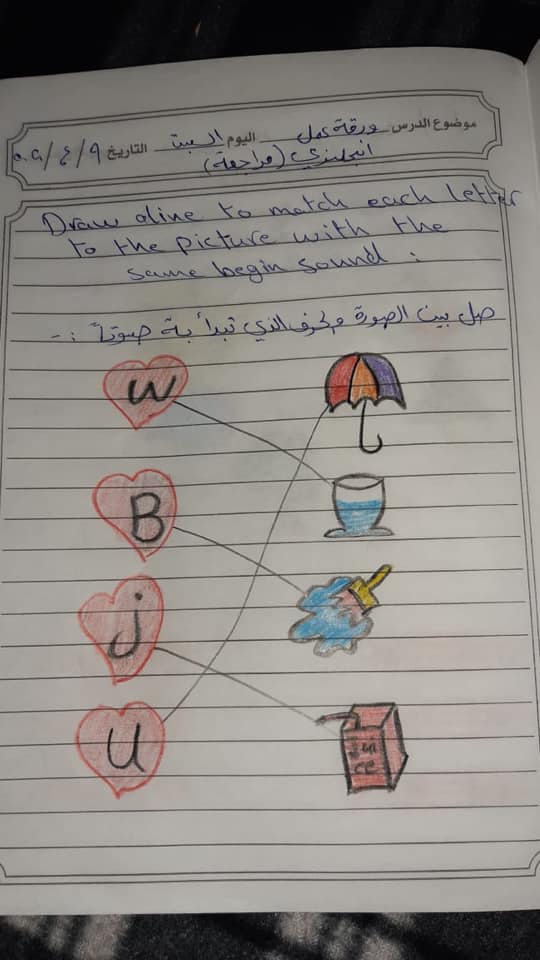 موضوع الدرس ورقة عمل اليوم السبت التاريخ ٩ / ٤ /
انجليزي (مراجعة)
Draw aline to match each letter
to the picture with the
same begin sound :
صل بين الصورة والحرف الذي تبدأ بة صوتاً :-
W
B
j
U
Jui
ce